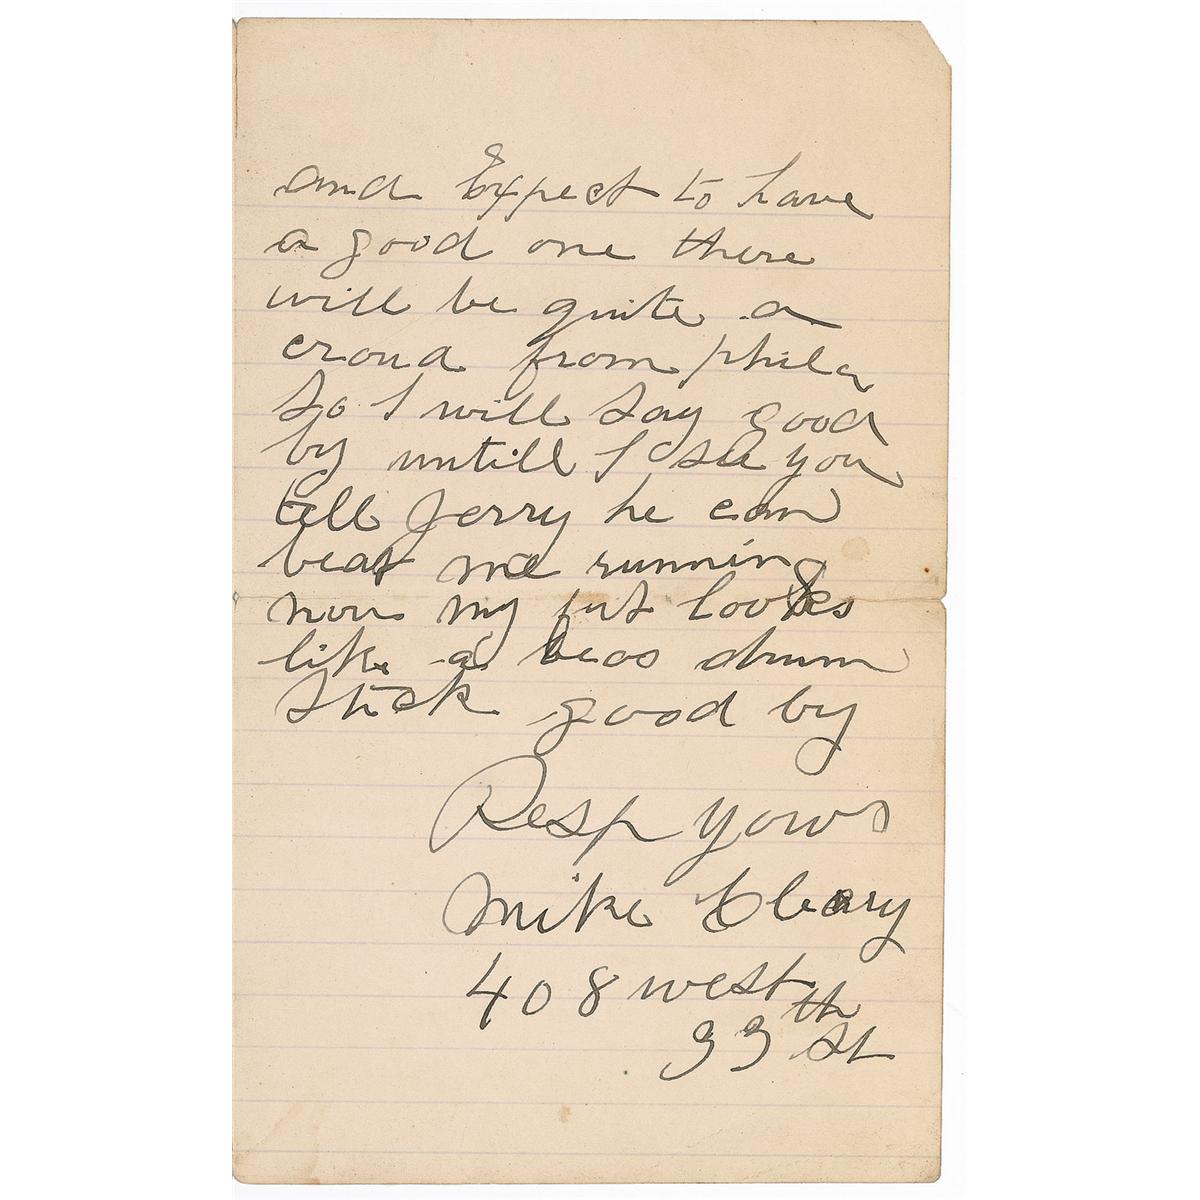 and Expect to have
a good one there
will be quite a
croud from phila
so I will say good
by untill I see you
tell Jerry he can
beat me running
now my fut lookes
like a beas drum
stick good by
Resp yours
Mike Cleary
408 west
33th st